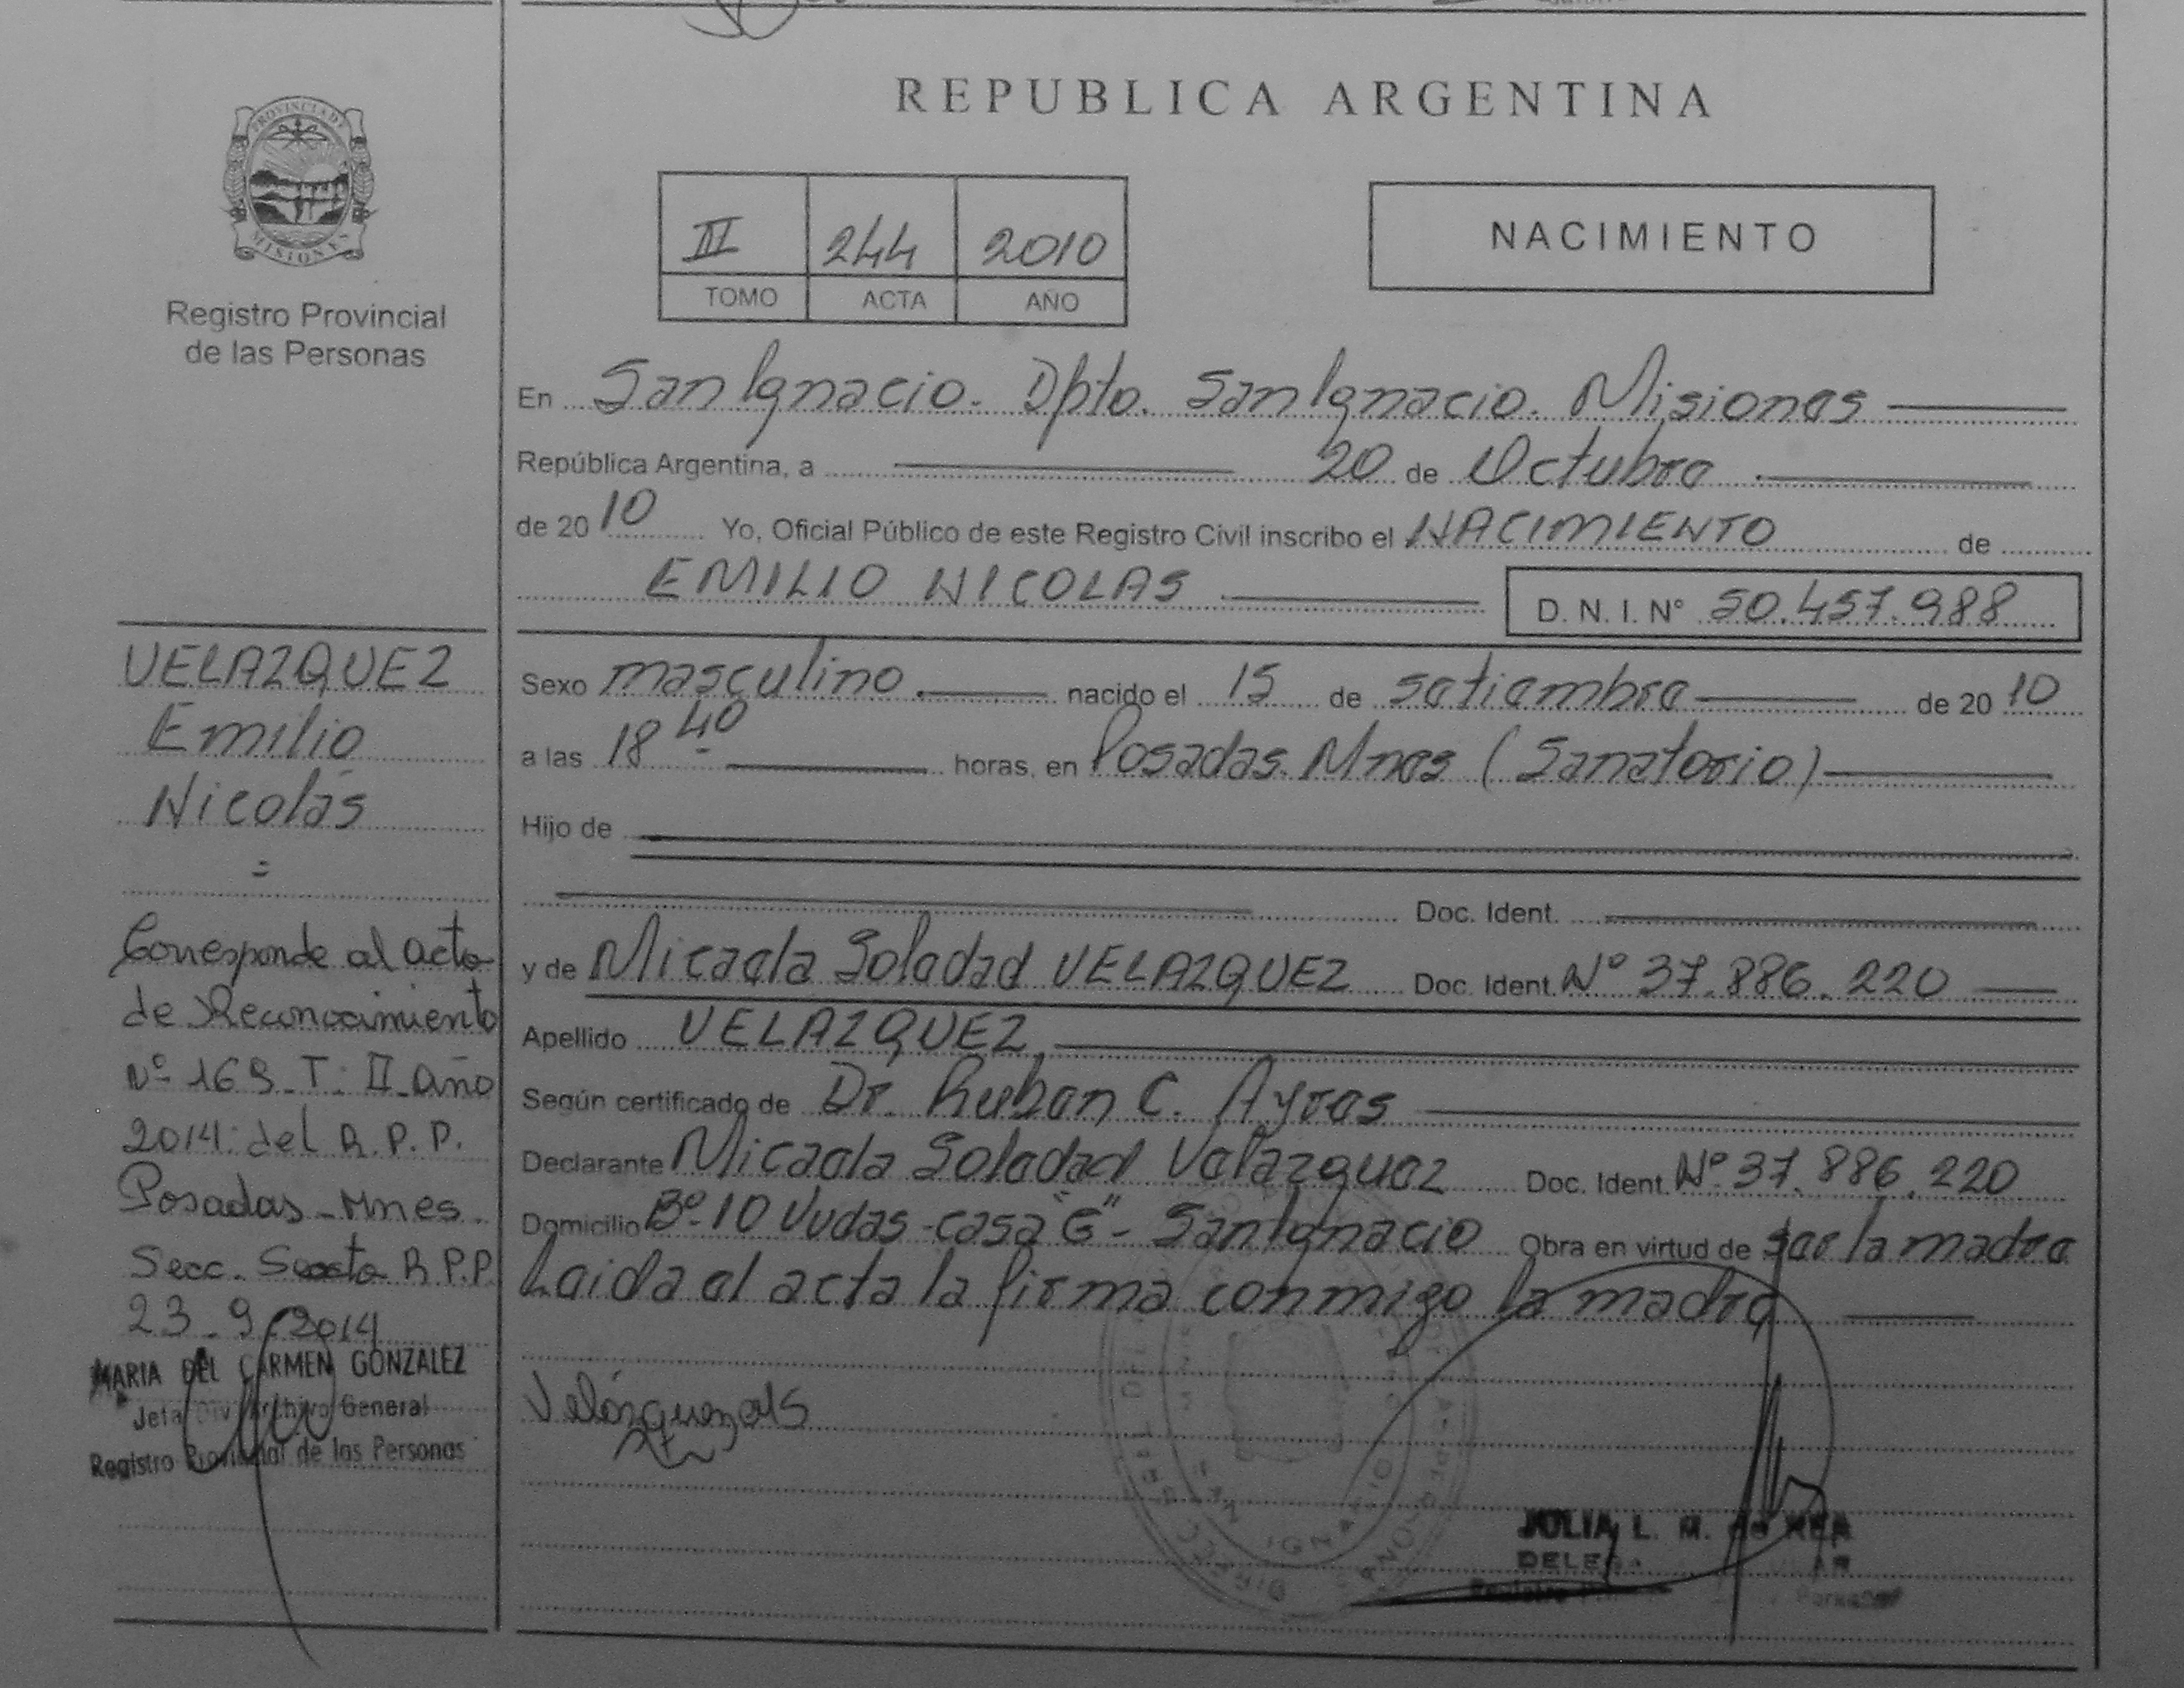 REPUBLICA ARGENTINA
PROVINCIA DE
MISIONES
Registro Provincial
de las Personas
III 244 2010
TOMO ACTA AÑO
NACIMIENTO
En San Ignacio. Dpto. San Ignacio. Misiones
República Argentina, a 20 de Octubre
de 2010 Yo, Oficial Público de este Registro Civil inscribo el NACIMIENTO de
EMILIO NICOLAS D. N. I. N° 50.457.988
Sexo masculino. nacido el 15 de setiembre de 2010
a las 18 40 horas, en Posadas. Mnes (Sanatorio)
Hijo de
Doc. Ident.
y de Micaela Soledad VELAZQUEZ Doc. Ident. N° 37.886.220
Apellido VELAZQUEZ
Según certificado de Dr. Ruben C. Ayres
Declarante Micaela Soledad Velazquez Doc. Ident. N° 37.886.220
Domicilio B° 10 Vvdas - casa "G" - San Ignacio Obra en virtud de ser la madre
Leida el acta la firma conmigo la madre
VELAZQUEZ
Emilio
Nicolás
=
Corresponde al acta
de Reconocimiento
N° 169 T: II Año
2014 del R.P.P.
Posadas - Mnes.
Secc. Sexta R.P.P
23.9.2014
MARIA DEL CARMEN GONZALEZ
Jefa Div. Archivo General
Registro Provincial de las Personas
JULIA L. M. de